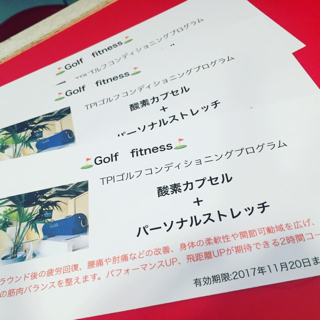 ⛳Golf fitness⛳
ゴルフコンディショニングプログラム
⛳Golf fitness⛳
TPIゴルフコンディショニングプログラム
酸素カプセル
+
パーソナルストレッチ
⛳Golf fitness⛳
TPIゴルフコンディショニングプログラム
酸素カプセル
+
パーソナルストレッチ
ラウンド後の疲労回復、腰痛や肘痛などの改善、身体の柔軟性や関節可動域を広げ、
の筋肉バランスを整えます。パフォーマンスUP、飛距離UPが期待できる2時間コー
有効期限:2017年11月20日ま